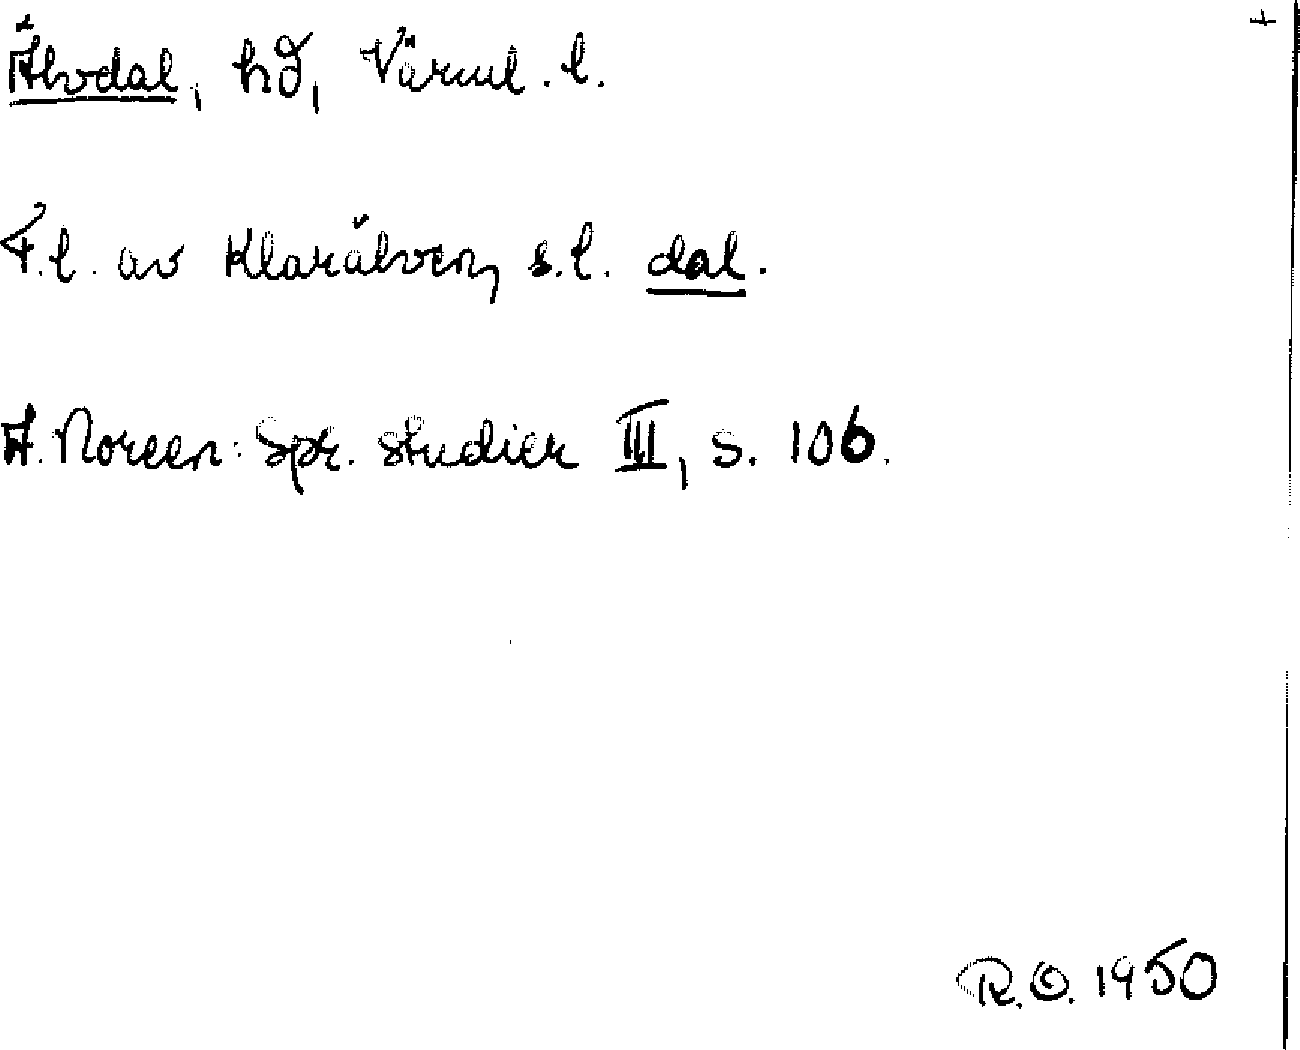 +
Älvdal, hd, Värml. l.
F.l. av Klarälven, s.l. dal.
A. Noreen: Spr. studier III, s. 106.
R.O. 1950